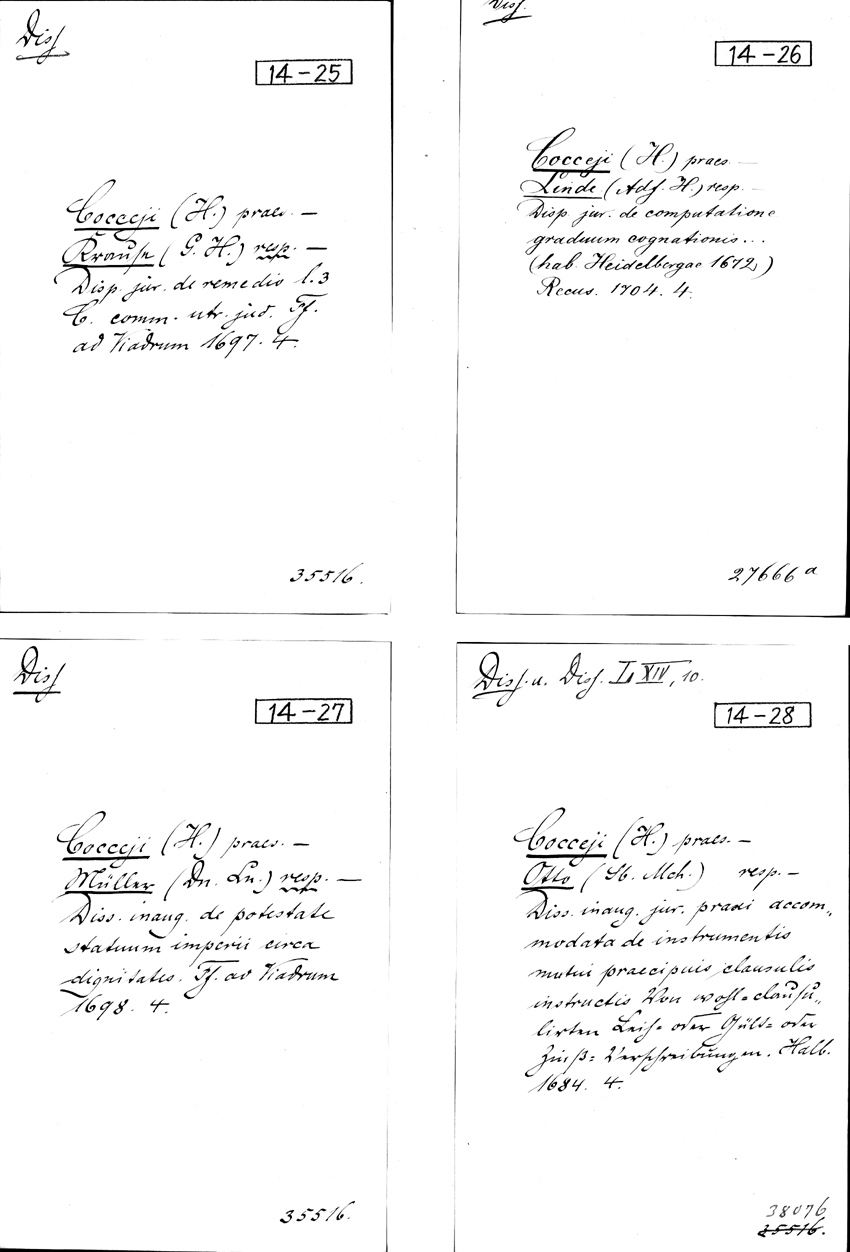 Diss
14-25
Cocceji (H.) praes. —
Krause (G. H.) resp. —
Disp. jur. de remedio l. 3
C. comm. utr. jud. Ff.
ad Viadrum 1697. 4.
35516.
Diss.
14-26
Cocceji (H.) praes. —
Linde (Adf. H.) resp. —
Disp. jur. de computatione
graduum cognationis...
(hab. Heidelbergae 1672)
Recus. 1704. 4.
27666 a
Diss
14-27
Cocceji (H.) praes. —
Müller (Dn. Ln.) resp. —
Diss. inaug. de potestate
statuum imperii circa
dignitates. Ff. ad Viadrum
1698. 4.
35516.
Diss. u. Diss. I, XIV, 10.
14-28
Cocceji (H.) praes. —
Otto (Sb. Mch.) resp. —
Diss. inaug. jur. praxi accom„
modata de instrumentis
mutui praecipuis clausulis
instructis Von wohl=clausu„
lirten Leih= oder Gült= oder
Zinß=Verschreibungen. Halb.
1684. 4.
38076
35516.